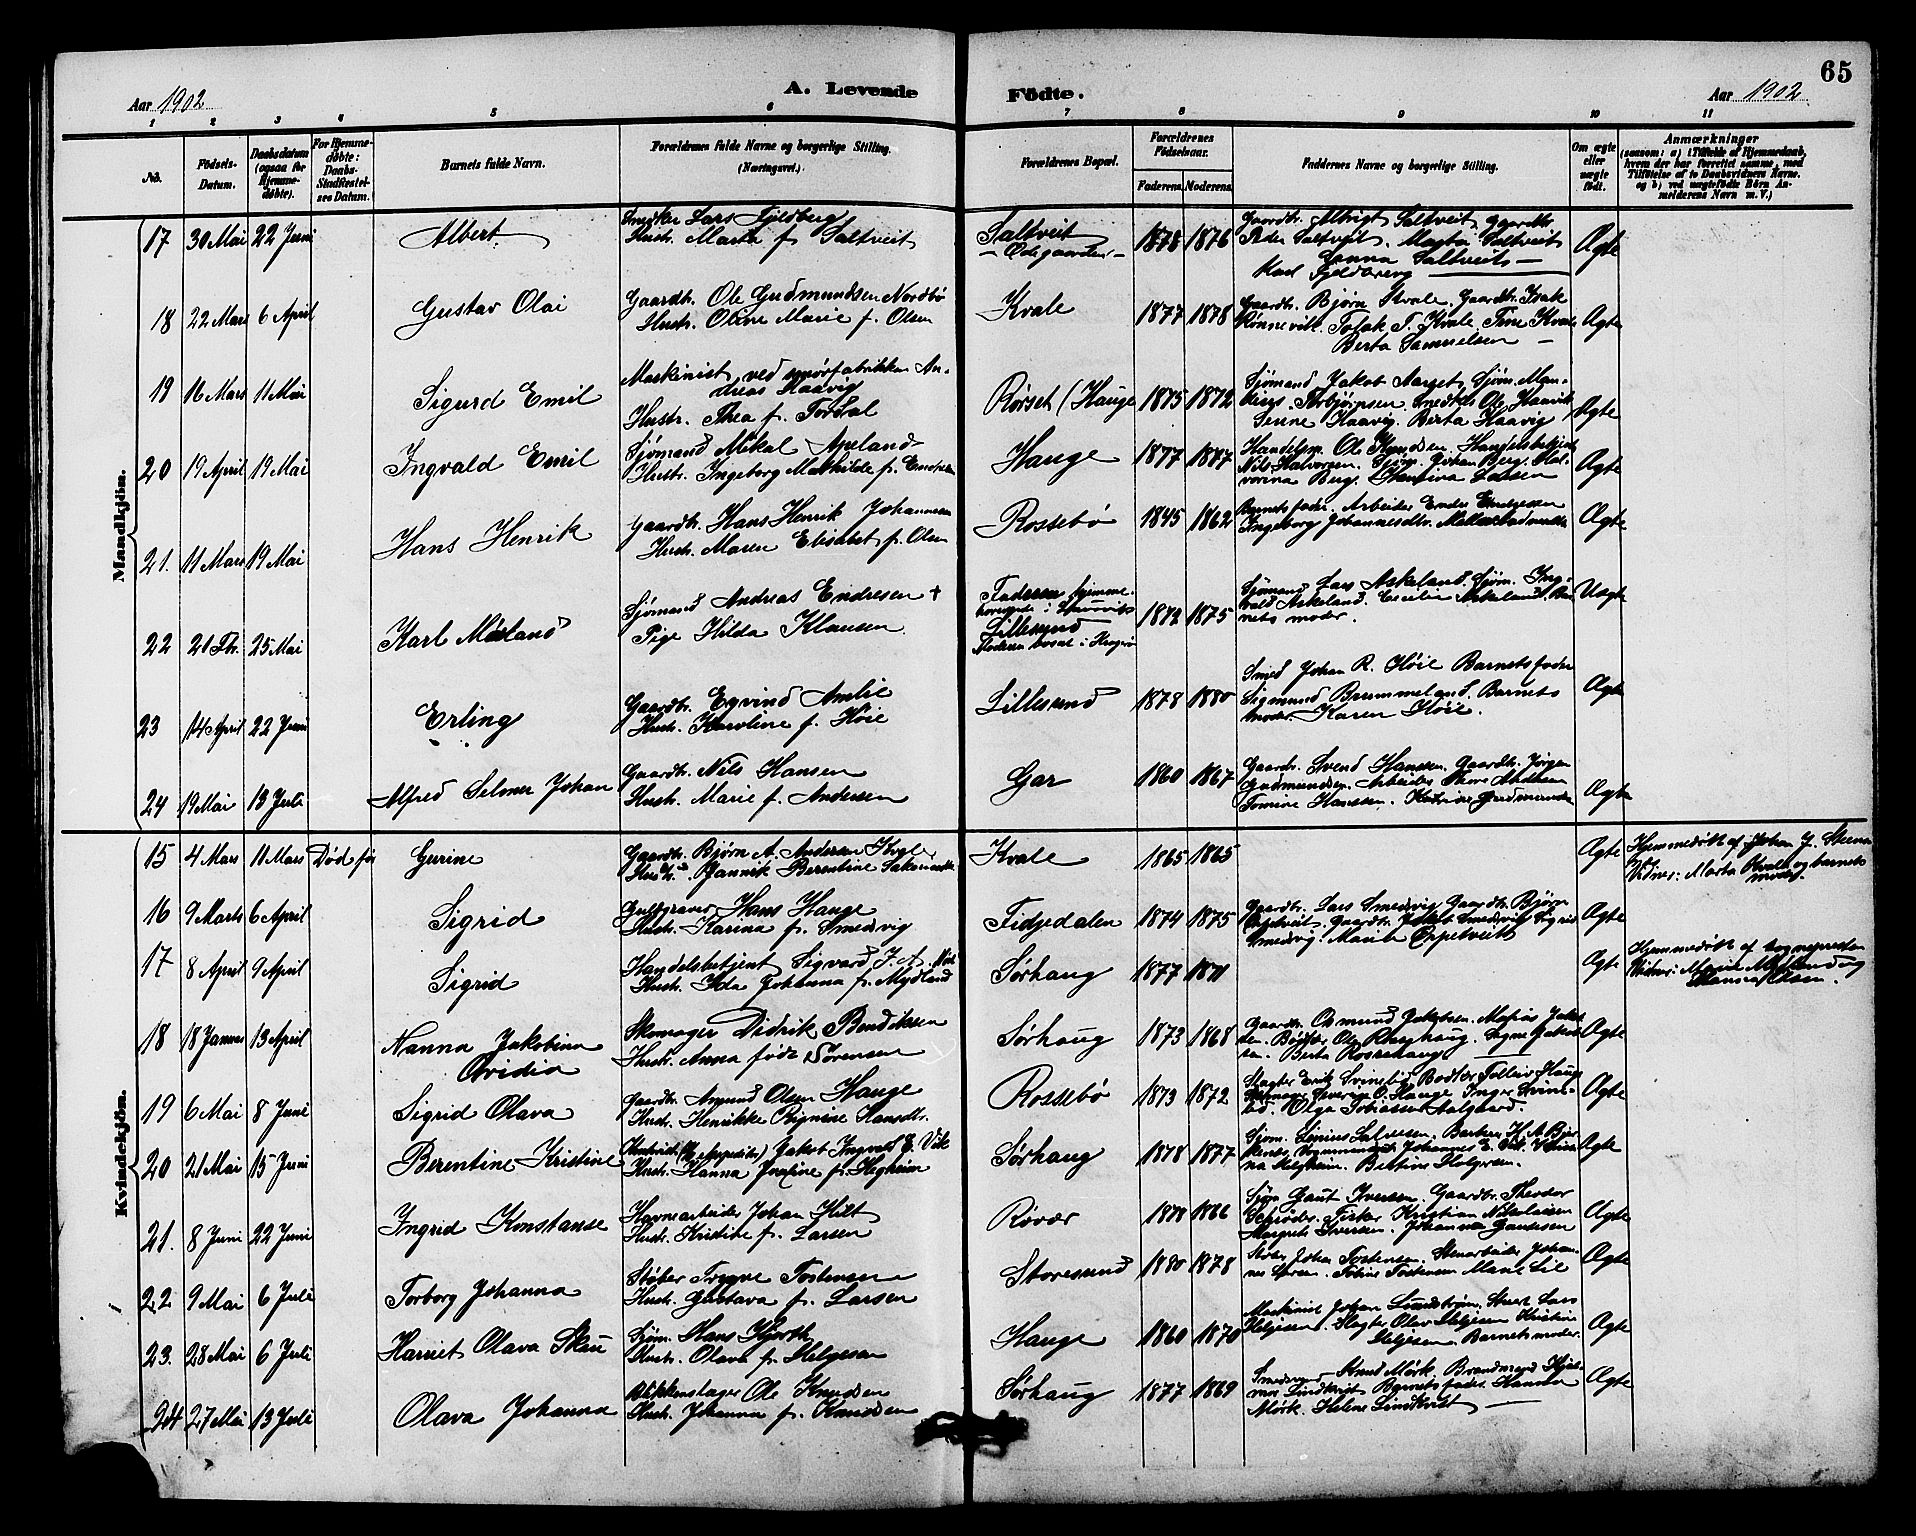 65
Aar 1902
A. Levende
Födte.
Aar 1902
1 2 3 4 5 6 7 8 9 10 11
No.
Födsels-Datum.
Daabsdatum (ogsaa for Hjemmedöbte).
For Hjemmedöbte: Daabs-Stadfæstelses Datum.
Barnets fulde Navn.
Forældrenes fulde Navne og borgerlige Stilling. (Næringsvei.)
Forældrenes Bopæl.
Forældrenes Födselsaar.
Faderens. Moderens.
Faddernes Navne og borgerlige Stilling.
Om ægte eller uægte födt.
Anmærkninger
(saasom: a) i Tilfælde af Hjemmedaab, hvem der har forrettet samme, med Tilföielse af to Daabsvidners Navne, og b) ved uægtefödte Börn Anmelderens Navn m. V.)
Mandkjön.
17 30 Mai 22 Juni
Albert
Lars Fjeldberg
Hustr. Marta f. Saltveit
Saltveit
Ødegaarden
1878 1876
Gaardbr. Saltveit, Gaardbr.
Peder Saltveit. Marta Saltveit
Saltveit
Karl Fjeldberg
Ægte
18 22 Mars 6 April
Gustav Olai
Gaardbr. Ole Gudmundsen Nordbö
Hustr. Oline Marie f. Olsen
Kvale
1877 1878
Gaardbr. Bjørn Kvale. Gaardbr. Isak
Rønnevik. Tolak T. Kvale. Tine Kvale
Berta Samuelsen
Ægte
19 16 Mars 11 Mai
Sigurd Emil
Maskinist ved smörfabrikken An-
dreas Haavig
Hustr. Thea f. Tordal
Rörset (Hauge
1875 1872
Sjömand Jakob
Torbjørnsen. Ole Haavik
Haavig. Berta Haavig
Ægte
20 19 April 19 Mai
Ingvald Emil
Sjömand Mikal Apeland
Hustr. Ingeborg Mathilde f.
Hauge
Handelsm. Ole Knudsen. Handelsbetjent
Nils Halvorsen. Sjöm. Johan Berg. Hal-
vorina Berg.
Ægte
21. 11 Mars 19 Mai
Hans Henrik
Gaardbr. Hans Henrik Johannesen
Hustr. Maren Elisabet f. Olsen
Rossebø
1845 1862
Barnets fader. Arbeider
Ingeborg Johannesdtr.
Ægte
22 25 Mai
Karl Mæland
Sjömand Andreas Endresen +
Pige Hilda Klausen
Faderen hjemme-
i
Lillesund
Moderen bosat i
1872 1875
Sjömand Lars Askeland. Sjöm. Ing-
vald Askeland. Cecilie Askeland. Bar-
nets moder.
Uægte
23 14 April 22 Juni
Erling
Gaardbr. Eyvind Amlie
Hustr. Karoline f. Høie
Lillesund
1878 1880
Smed Johan R. Høie Barnets fader
Sigmund Brummeland. Barnets
moder. Karen Høie.
Ægte
24 19 Mai 13 Juli
Alfred Selmer Johan
Gaardbr. Nils Hansen
Hustr. Marie f. Andersen
Gar
1860 1867
Gaardbr. Svend Hansen. Gaardbr. Jörgen
Gudmundsen. Arbeider
Tomine Hansen.
Ægte
Kvindekjön.
15 4 Mars 11 Mars Död för
Gurine
Gaardbr. Bjørn A. Andersen Kvale
Hustr. Berentine
Kvale
1865 1865
Ægte
Hjemmedöbt af Johan J.
Vidner: Marta Kvale og barnets
moder.
16 9 Marts 6 April
Sigrid
Guldgraver Hans Hauge
Hustr. Karina f. Smedsvig
Fidjedalen
1874 1875
Gaardbr. Lars Smedsvig Gaardbr. Bjørn
Gaardbr. Jakob Smedsvig Sigrid
Smedsvig. Marite Eppetveit
Ægte
17 8 April 9 April
Sigrid
Handelsbetjent Sigvard J. A.
Hustr. Ida Johanna f. Mydland
Sørhaug
1877 1871
Ægte
Hjemmedöbt af sognepresten
Vidner: Marie Mydland og
18 18 Januar 13 April
Nanna Jakobina
Ovidia
Skomager Didrik Bendiksen
Hustr. Anna född Sørensen
Sørhaug
1873 1868
Gaardbr. Osmund Jakobsen.
Bödker Ole Røsshaug. Signe
Berta Rossehaug
Ægte
19 6 Mai 8 Juni
Sigrid Olava
Gaardbr. Amund Olsen Hauge
Hustr. Henrikke Hansdtr.
Rossebø
1873 1872
Slagter Erik
Severin O. Hauge. Inger
Olga Tobiassen Aalgaard.
Ægte
20 21 Mai 15 Juni
Berentine Kristine
Jakob Ingvald E. Vik
Hustr. Hanna Justine f. Hegheim
Sørhaug
1878 1877
Sjöm. Salvesen. Barber H. A.
Johannes E.
Bertine Helgesen.
Ægte
21. 8 Juni 22 Juni
Ingrid Konstanse
Havnearbeider Johan Hilt
Hustr. Kristine f. Larsen
Røvær
Sjöm. Gaut Iversen. Gaardbr. Theodor
Schröder. Fisker Kristian Nikolaisen
Margrete Iversen. Johanna Gautesen
Ægte
22 9 Mai 6 Juli
Torborg Johanna
Støber Trygve Tostensen
Hustr. Gustava f. Larsen
Storesund
1880 1878
Støber Johan Tostensen. Stenarbeider Johan-
nes Larsen. Tobine Tostensen Marie Lie
Ægte
23. 28 Mai 6 Juli
Harriet Olava Skeu
Sjöm. Hans Hjorth
Hustr. Olava f. Helgesen
Hauge
1860 1870
Maskinist Johan Lundström. Lars
Helgesen. Slagter Olav Helgesen Kristine
Helgesen. Barnets moder.
Ægte
24 27 Mai 13 Juli
Olava Johanna
Blikkenslager Ole Knudsen
Hustr. Johanna f. Knudsen
Sørhaug
1877 1869
Knud Mørk. Brandmand Hjal-
mar Lindkvist Barnets fader. Hanna
Mørk. Helene Lindkvist
Ægte